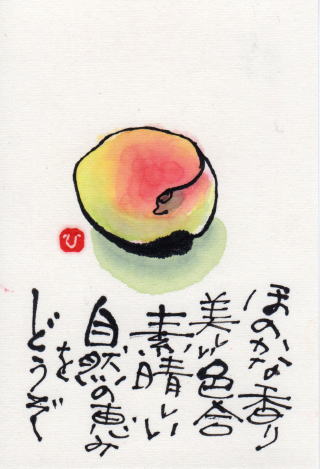 ほのかな香り
美しい色合
素晴しい
自然の恵み
を
どうぞ
ひ